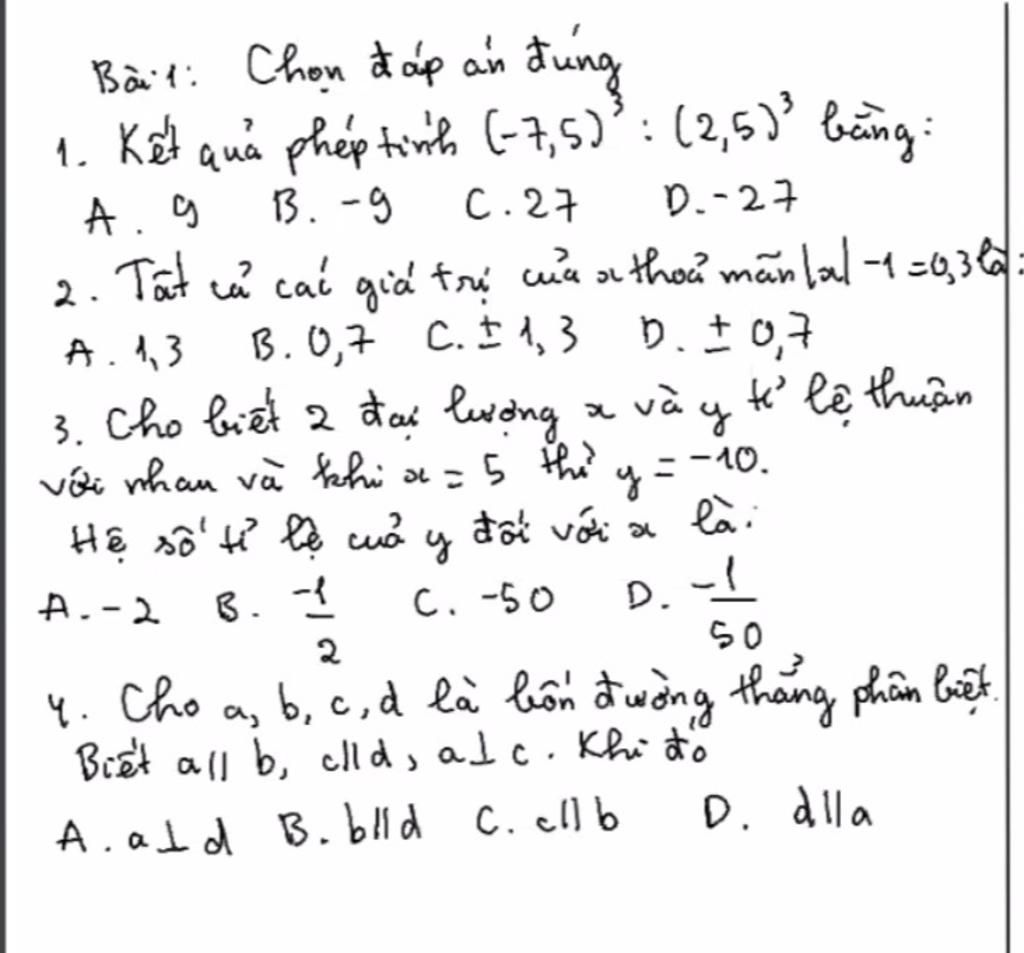 Bài 1: Chọn đáp án đúng
1. Kết quả phép tính (-7,5)³ : (2,5)³ bằng:
A. 9 B. -9 C. 27 D. -27
2. Tất cả các giá trị của x thoả mãn |x| -1 = 0,3 là:
A. 1,3 B. 0,7 C. ± 1,3 D. ± 0,7
3. Cho biết 2 đại lượng x và y tỉ lệ thuận
với nhau và khi x = 5 thì y = -10.
Hệ số tỉ lệ của y đối với x là:
A. -2 B. -1/2 C. -50 D. -1/50
4. Cho a, b, c, d là bốn đường thẳng phân biệt.
Biết a || b, c || d, a ⊥ c. Khi đó
A. a ⊥ d B. b || d C. c || b D. d || a